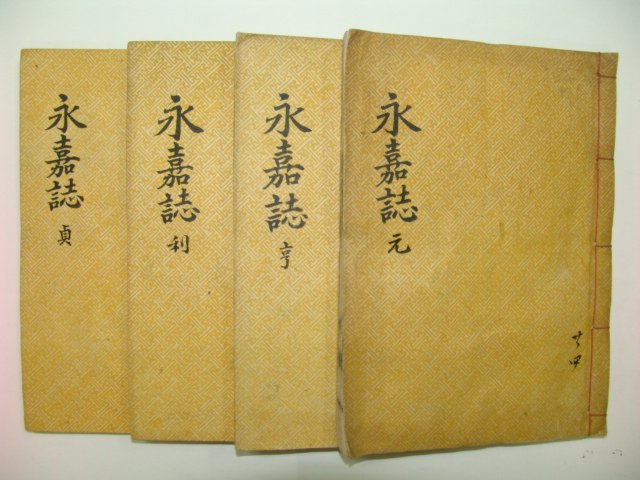 永嘉誌 元
永嘉誌 亨
永嘉誌 利
永嘉誌 貞